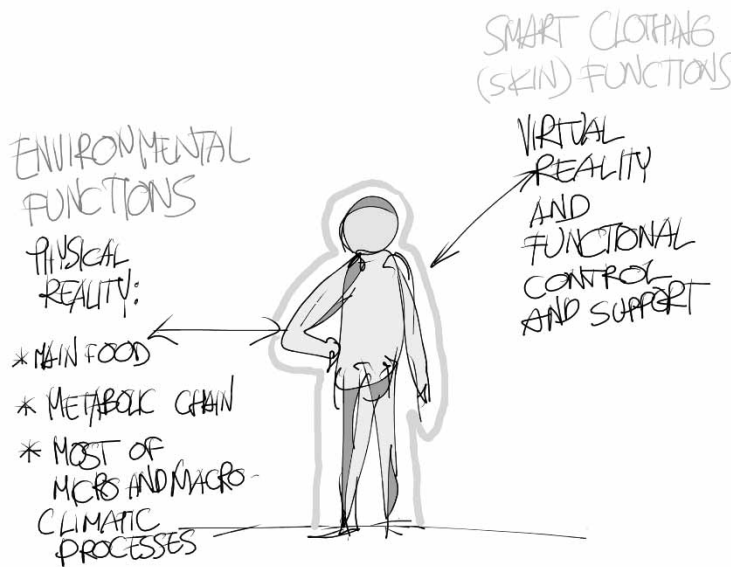 ENVIRONMENTAL
FUNCTIONS
PHYSICAL
REALITY:
* MAIN FOOD
* METABOLIC CHAIN
* MOST OF
MICRO AND MACRO-
CLIMATIC
PROCESSES
SMART CLOTHING
(SKIN) FUNCTIONS
VIRTUAL
REALITY
AND
FUNCTIONAL
CONTROL
AND SUPPORT